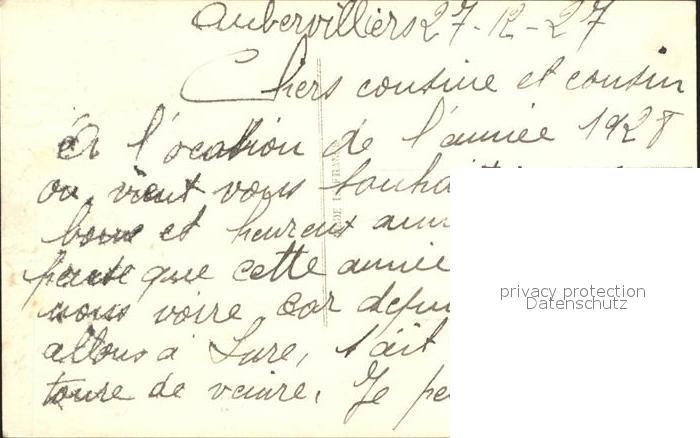 Aubervilliers 27-12-27
Chers cousine et cousin
A l'ocation de l'année 1928
on vient vous souhait
bonne et heureux ann
que cette année
nous voire car depui
allons à Lure, s'ait
toure de venire. Je pe
privacy protection
Datenschutz